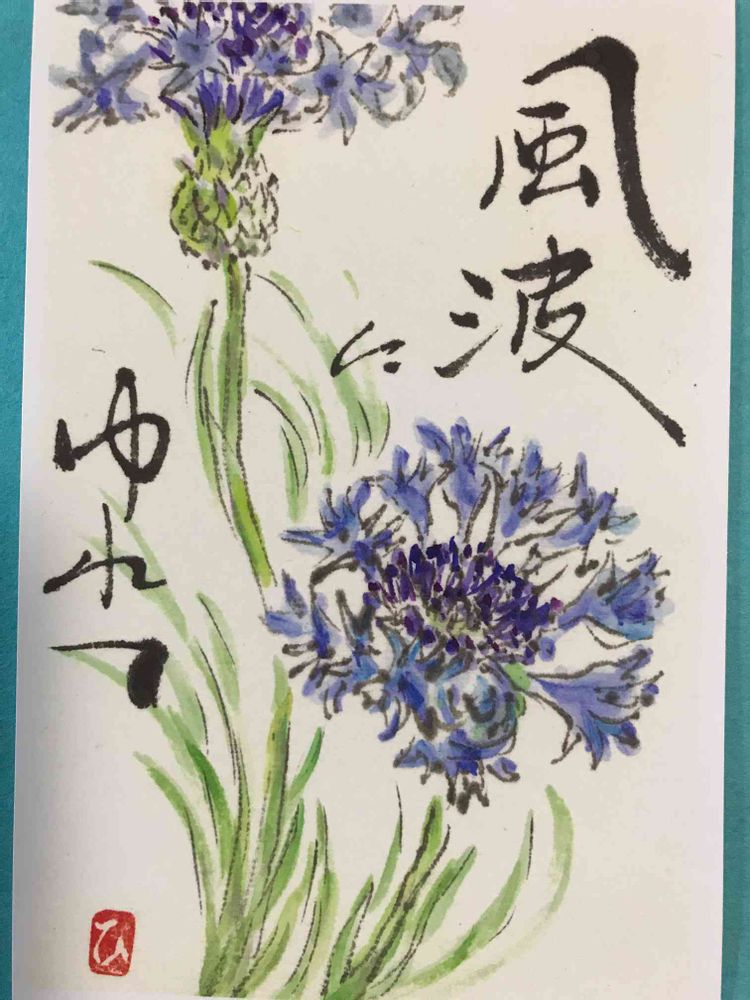 風波に
ゆれつ
ひ